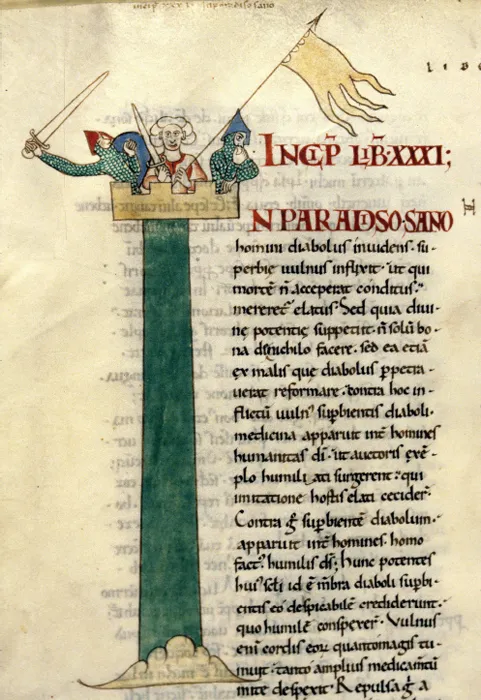 INCIP̄ LIB̄ XXXI;
IN PARADISO SANO
homini diabolus inuidens. su-
perbie uulnus inflixit. ut qui
mortē n̄ acceperat conditus.
mereret elatus. Sed quia diui-
nę potentię suppetit. n̄ solū bo-
na de nichilo facere. sed ea etiā
ex malis que diabolus ꝑpetra-
uerat reformare. contra hoc in-
flictū uuln' supbientis diaboli.
medicina apparuit int̄ homines
humilitas dī. ut auctoris exē-
plo humiliati surgerent. qui
imitatione hostis elati cecider̄.
Contra g̊ supbientē diabolum.
apparuit int̄ homines. homo
fact' humilis ds̄. Hunc potentes
hui' scl̄i id ē mb̄ra diaboli supbi-
entis eo despicabilē crediderunt.
quo humilē conspexer̄. Vulnus
eni cordis eoꝝ quantomagis tu-
muit. tanto amplius medicamtū
mite despexit. Repulsa g̊ a